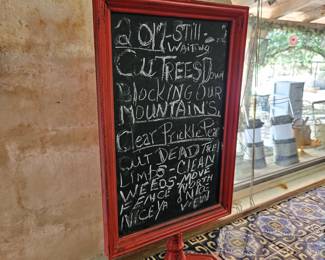 2 017-STILL-
WAITING
CUT TREES DOWN
BLOCKING OUR
MOUNTAINS.
Clear Prickle Pear
CUT DEAD TREE
LIMBS-CLEAN
WEEDS-MOVE
FENCE NORTH
NICE YA NICE
VIEW